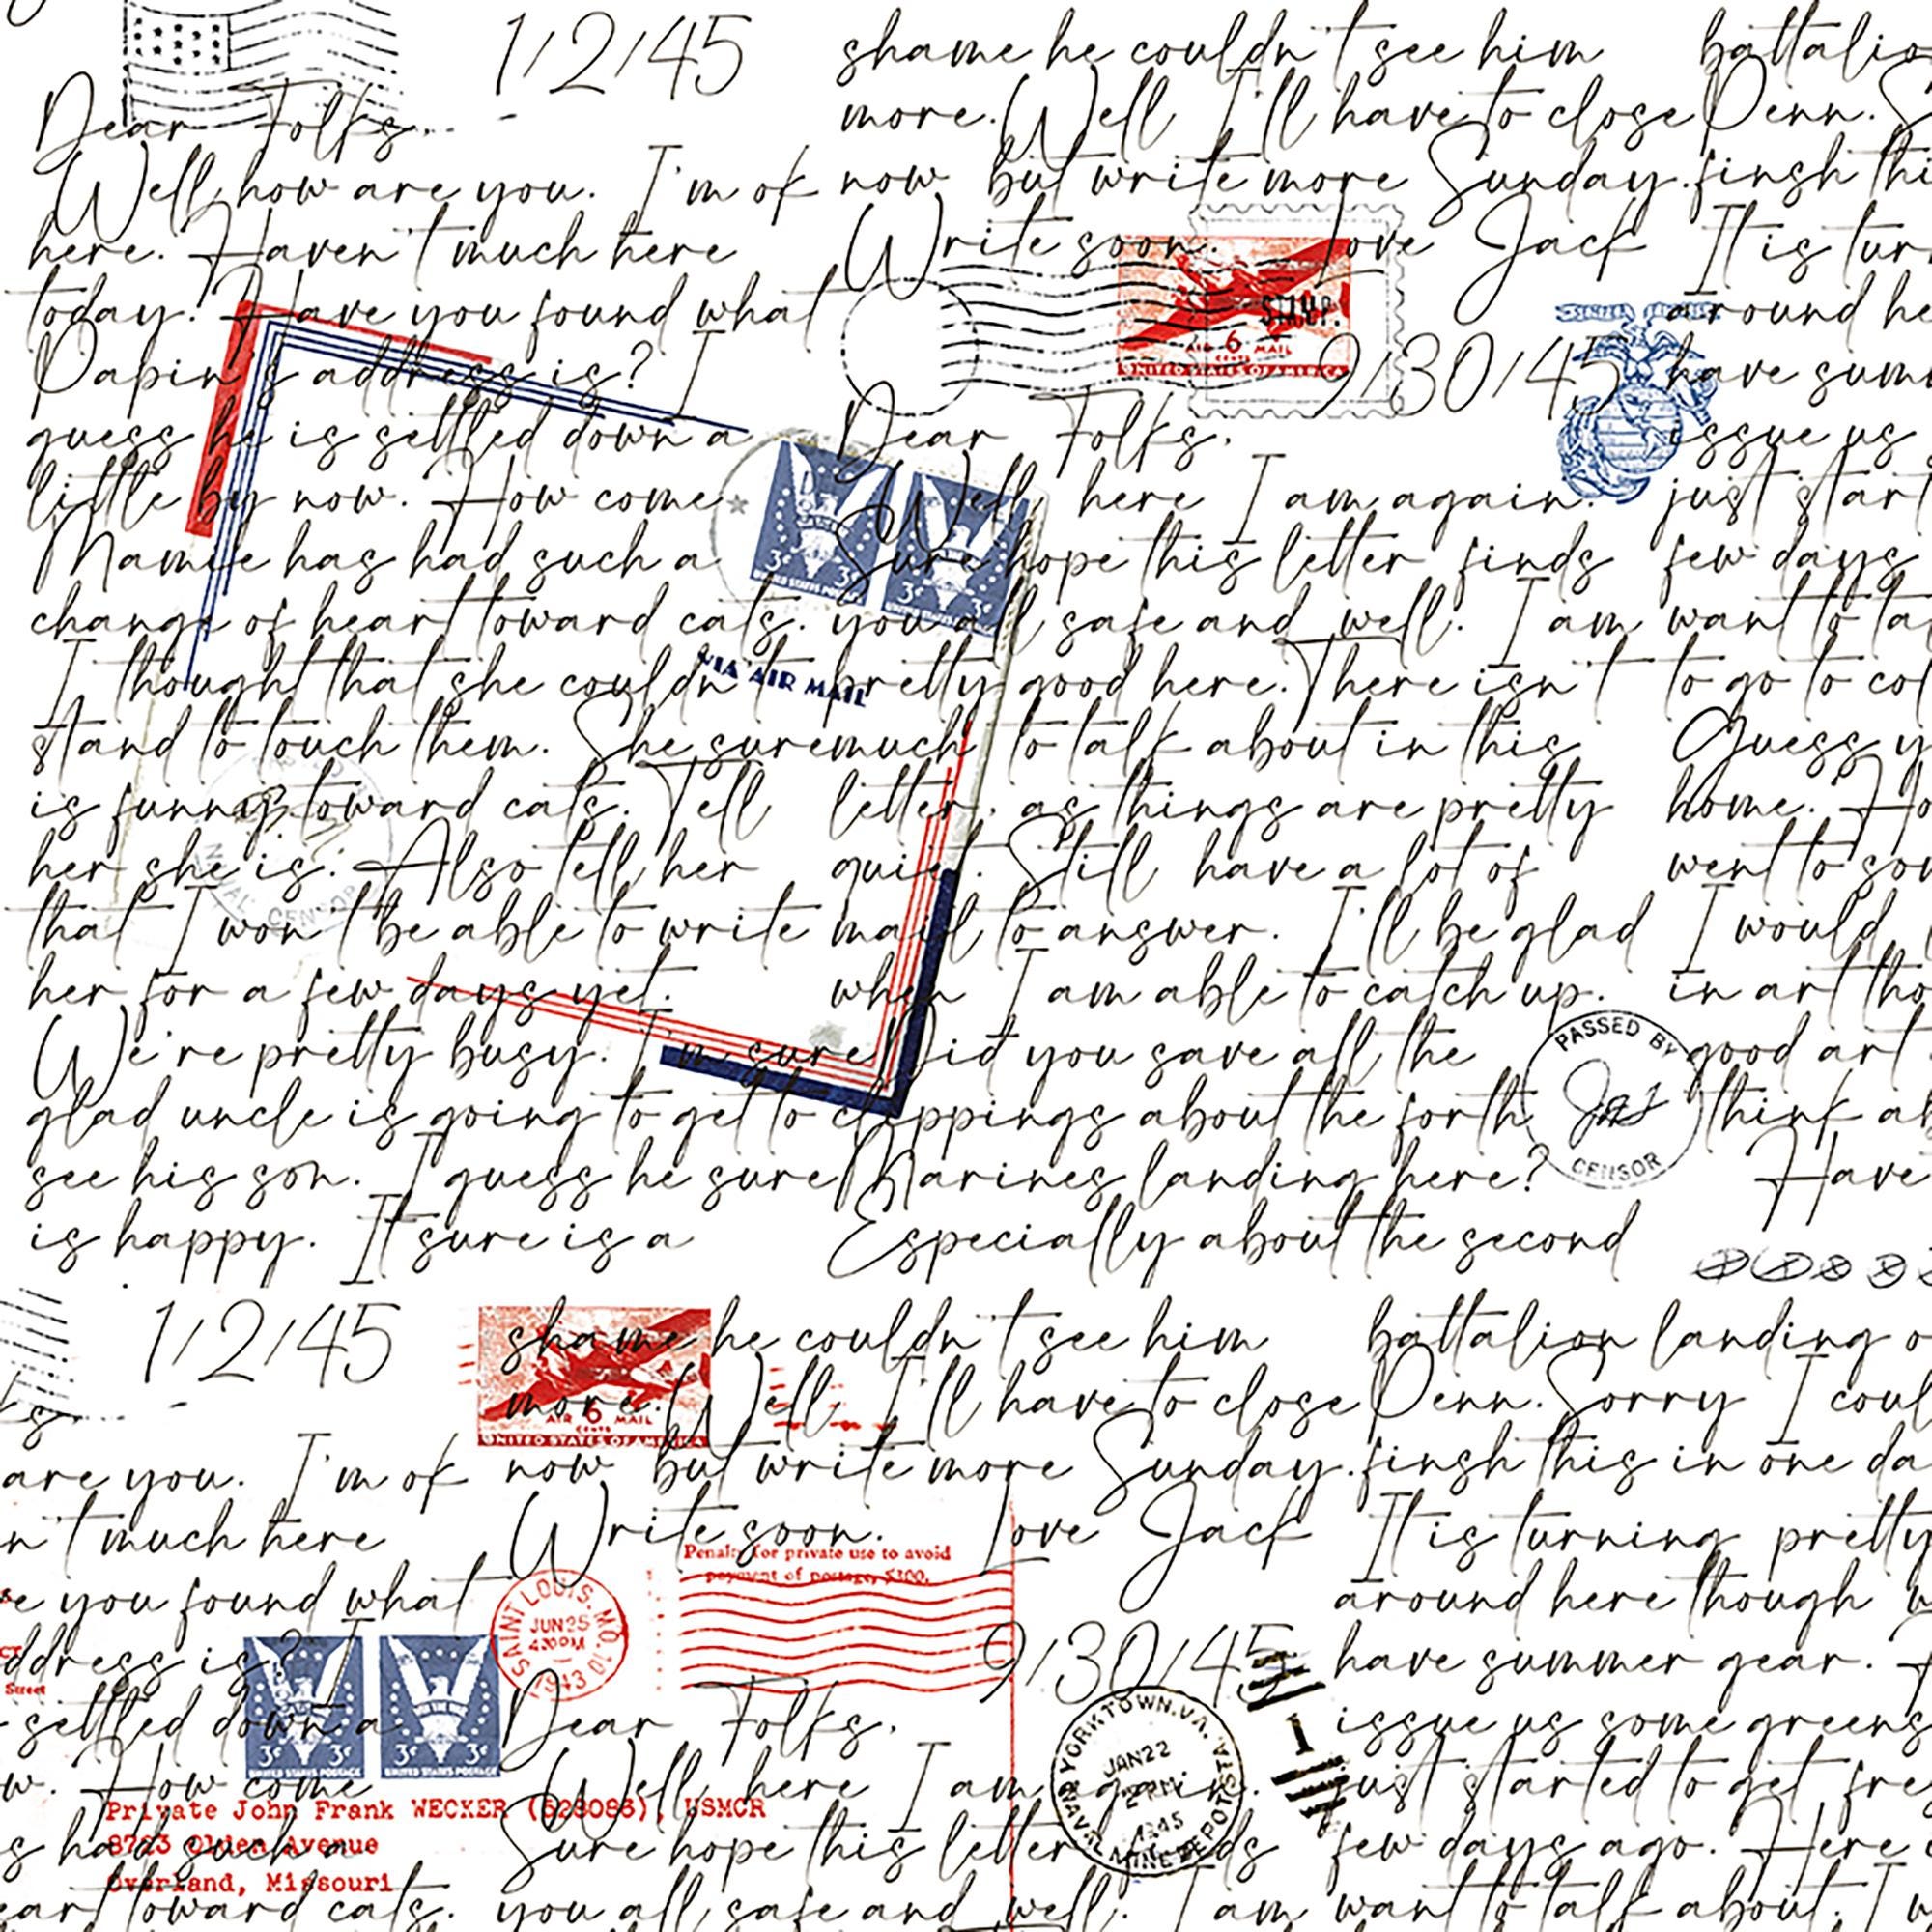 1/2/45
Dear Folks.
Well how are you. I'm ok
here. Haven't much here
today. Have you found what
Papin's address is? I
guess he is settled down a
little by now. How come
Mamie has had such a
change of heart toward cats.
I thought that she couldn't
stand to touch them. She sure
is funny toward cats. Tell
her she is. Also tell her
that I won't be able to write
her for a few days yet.
We're pretty busy. I'm sure
glad uncle is going to get to
see his son. I guess he sure
is happy. It sure is a
shame he couldn't see him
more. Well I'll have to close
now but write more Sunday.
Write soon. Love Jack
AIR 6 MAIL
CENTS
UNITED STATES OF AMERICA
9/30/45
Dear Folks.
Well here I am again.
Sure hope this letter finds
you all safe and well. I am
pretty good here. There isn't
much to talk about in this
letter. as things are pretty
quiet. Still have a lot of
mail to answer. I'll be glad
when I am able to catch up.
Did you save all the
clippings about the forth
Marines landing here?
Especially about the second
3¢ 3¢
UNITED STATES POSTAGE
3¢ 3¢
UNITED STATES POSTAGE
VIA AIR MAIL
NAVAL CENSOR
SEMPER
PASSED BY
CENSOR
battalio
Penn. S
finsh thi
It is tur
around he
have summ
issue us
just start
few days
want to ta
to go to col
Guess y
home. Ho
went to so
I would
in art tho
good art
think ab
Have
1/2/45
ks.
are you. I'm ok
n't much here
e you found what
ddress is? I
settled down a
w. How come
s had such a
eart toward cats.
shame he couldn't see him
more. Well I'll have to close
now but write more Sunday.
Write soon. Love Jack
AIR 6 MAIL
CENTS
UNITED STATES OF AMERICA
Penalty for private use to avoid
payment of postage, $300.
SAINT LOUIS, MO. 10
JUN 25
4:30 PM
1943
Street
3¢ 3¢
UNITED STATES POSTAGE
3¢ 3¢
UNITED STATES POSTAGE
Private John Frank WECKER (528086), USMCR
8723 Olden Avenue
Overland, Missouri
9/30/45
Dear Folks.
Well here I am again.
Sure hope this letter finds
you all safe and well. I am
YORKTOWN, VA.
JAN 22
2 PM
1945
NAVAL MINE DEPOT STA.
1
battalion landing o
Penn. Sorry I coul
finsh this in one da
It is turning pretty
around here though w
have summer gear.
issue us some greens
just started to get fre
few days ago. Here
want to talk about. I w